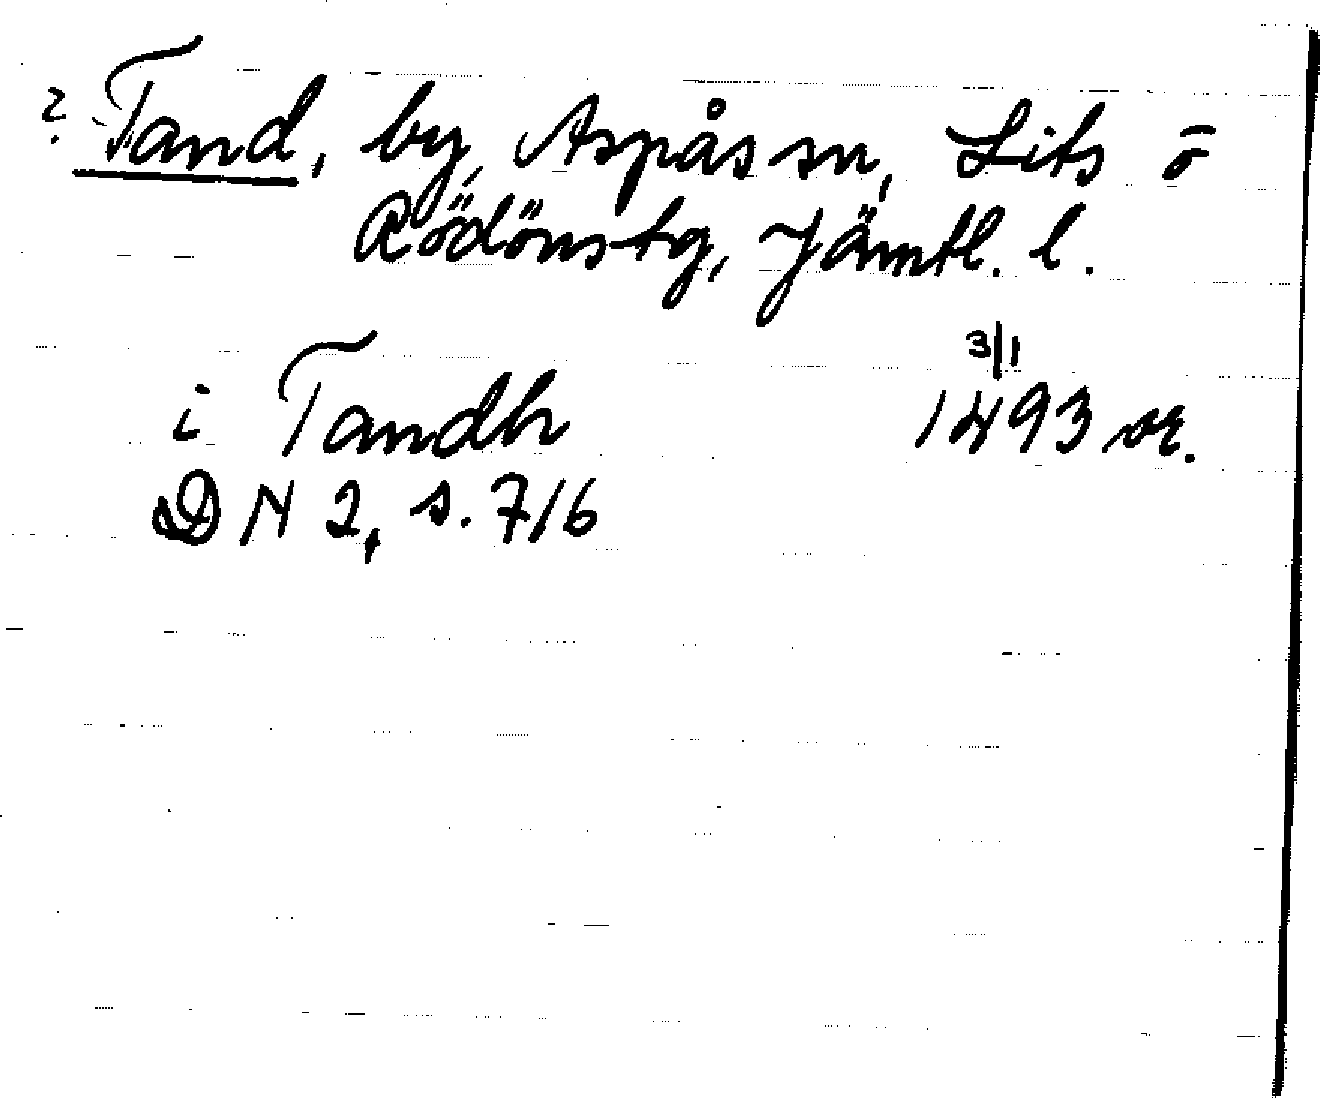 ? Tand, by, Aspås sn, Lits ō
Rödöns tg, Jämtl. l.
3/1
i Tandh 1493 or.
DN 2, s. 716